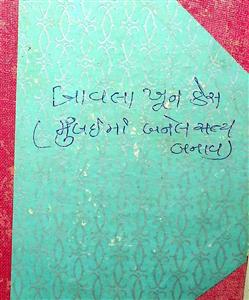 બાવલા ખૂન કેસ
(મુંબઈમાં બનેલ સત્ય
બનાવ)